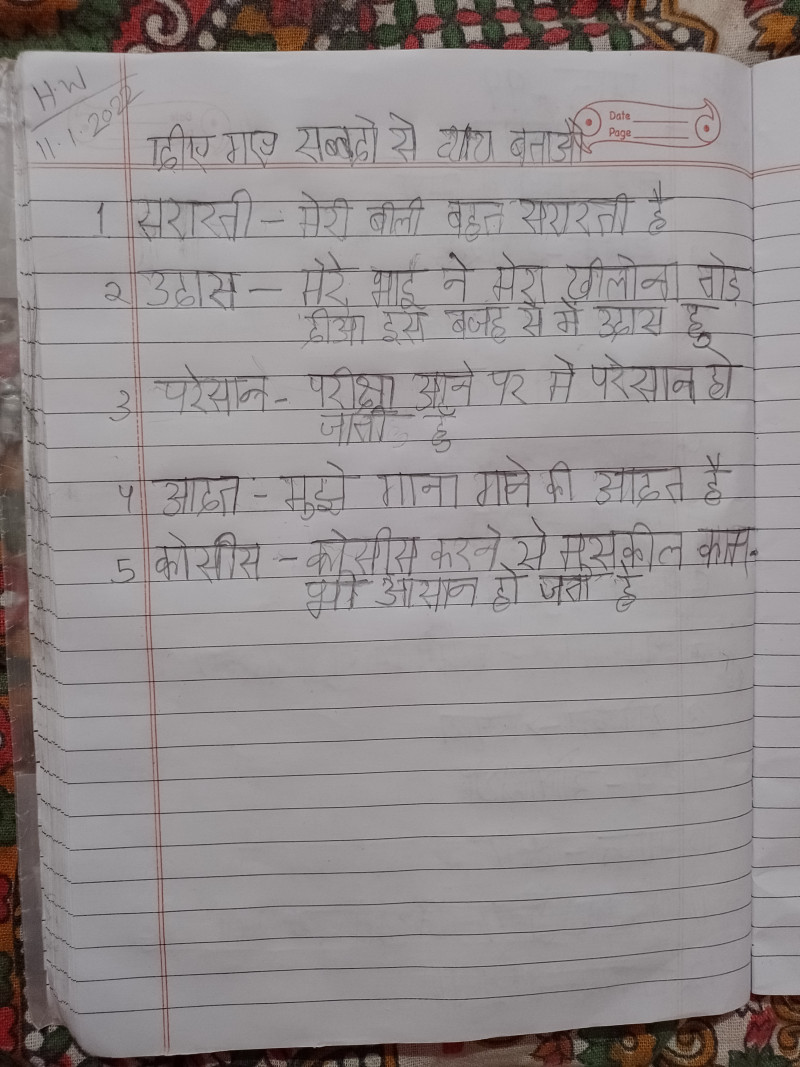 H.W
11.1.2022
Date
Page
दीए गए सब्बदो से बताओ
1 सरारती - मेरी बीली बहुत सरारती है
२ उदास - मेरे भाई ने मेरा खीलोना तोड़
दीआ इस बजह से में उदास हु
3 परेसान - परीक्षा आने पर मे परेसान हो
जाती हुँ
4 आदत - मुझे गाना गाने की आदत है
5 कोसीस - कोसीस करने से मुसकील काम
भी आसान हो जता है